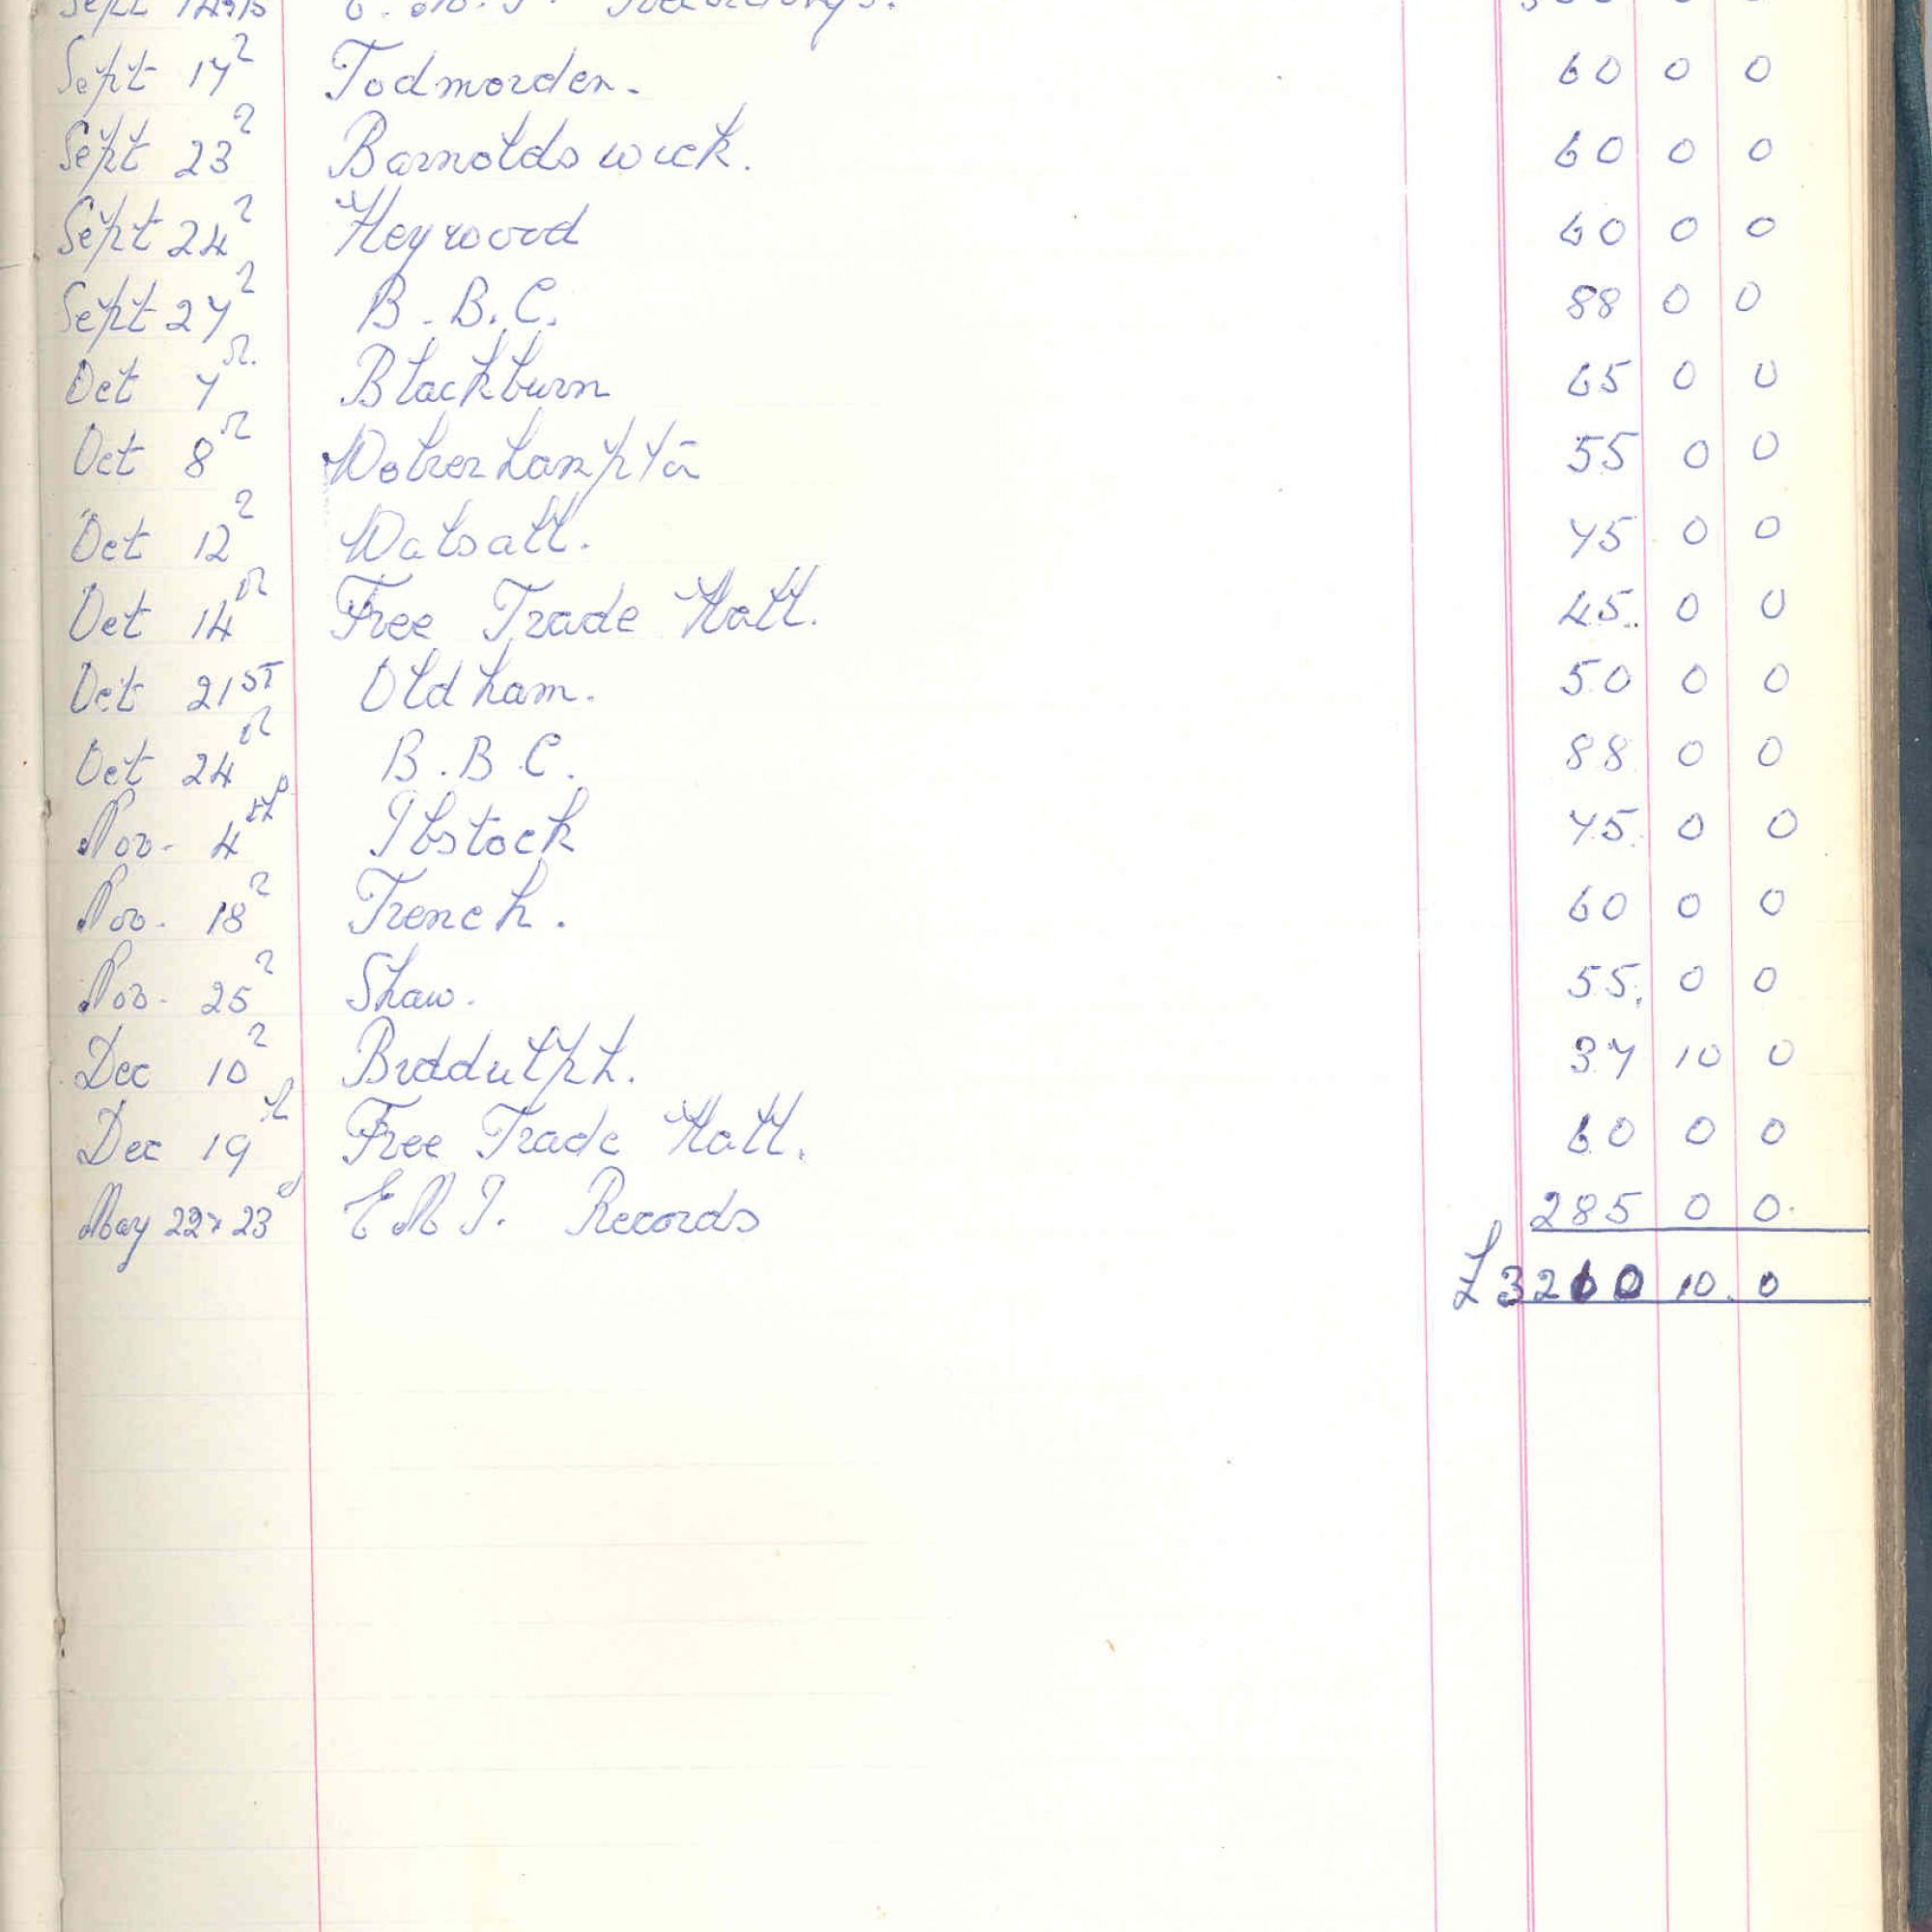 Sept 14&15 E.M.I. Recordings. 300 0 0
Sept 17th Todmorden. 60 0 0
Sept 23 Barnoldswick. 60 0 0
Sept 24th Heywood 60 0 0
Sept 27th B.B.C. 88 0 0
Oct 7th Blackburn 65 0 0
Oct 8th Wolverhamptõ 55 0 0
Oct 12th Walsall. 75 0 0
Oct 14th Free Trade Hall. 45 0 0
Oct 21ST Oldham. 50 0 0
Oct 24th B.B.C. 88 0 0
Nov- 4th Ibstock 75 0 0
Nov- 18th Trench. 60 0 0
Nov- 25th Shaw. 55 0 0
Dec 10th Biddulph. 37 10 0
Dec 19th Free Trade Hall. 60 0 0
May 22 & 23rd E M I. Records 285 0 0
£3260 10 0